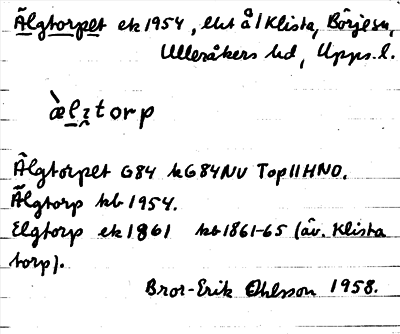 Älgtorpet ek 1954, lht å/Klista, Börje sn,
Ulleråkers hd, Upps. l.
æ̀lɪtorp
Älgtorpet G84 kG84NV Top11HNO.
Älgtorp kb 1954.
Elgtorp ek 1861 kb 1861-65 (äv. Klista
torp).
Bror-Erik Ohlsson 1958.